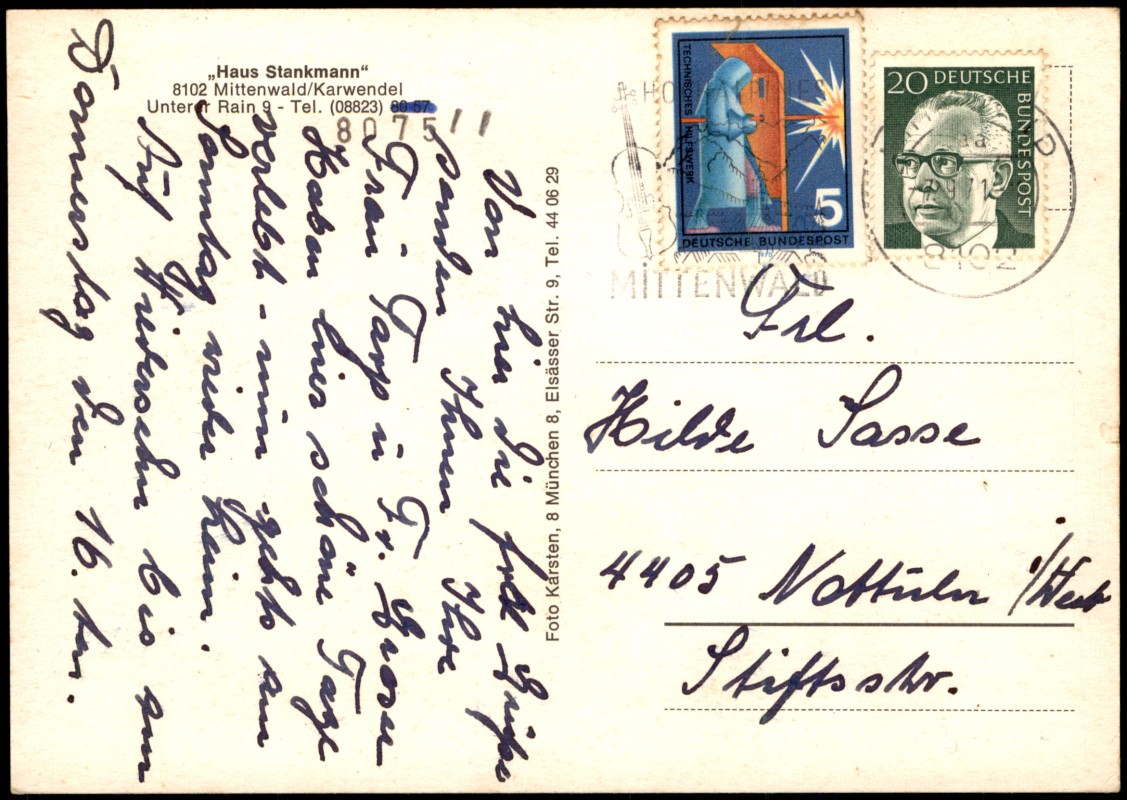 „Haus Stankmann“
8102 Mittenwald/Karwendel
Unterer Rain 9 - Tel. (08823) 80 57
8075
Von hier die frdl Grüße
senden Ihnen Ihre
Frau Tarp u Fr. Groser
Haben hier schöne Tage
verlebt - nun gehts am
Sonntag wieder heim.
Auf Wiedersehn bis zum
Donnerstag den 16. ten.
Foto Karsten, 8 München 8, Elsässer Str. 9, Tel. 44 06 29
TECHNISCHES HILFSWERK
5
DEUTSCHE BUNDESPOST
20 DEUTSCHE
BUNDESPOST
MITTENWALD
8102
Frl.
Hilde Sasse
4405 Nottuln i/Westf
Stiftsstr.